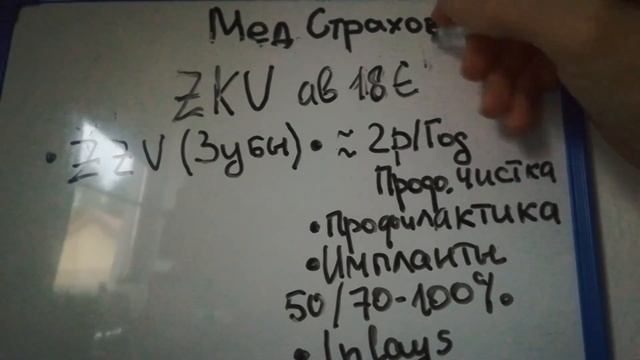 Мед Страхов
ZKV ав 18€
• ZZV (Зубы) • ≈ 2р/Год
Проф. Чистка
• Профилактика
• Импланты
50/70-100%
• Inlays